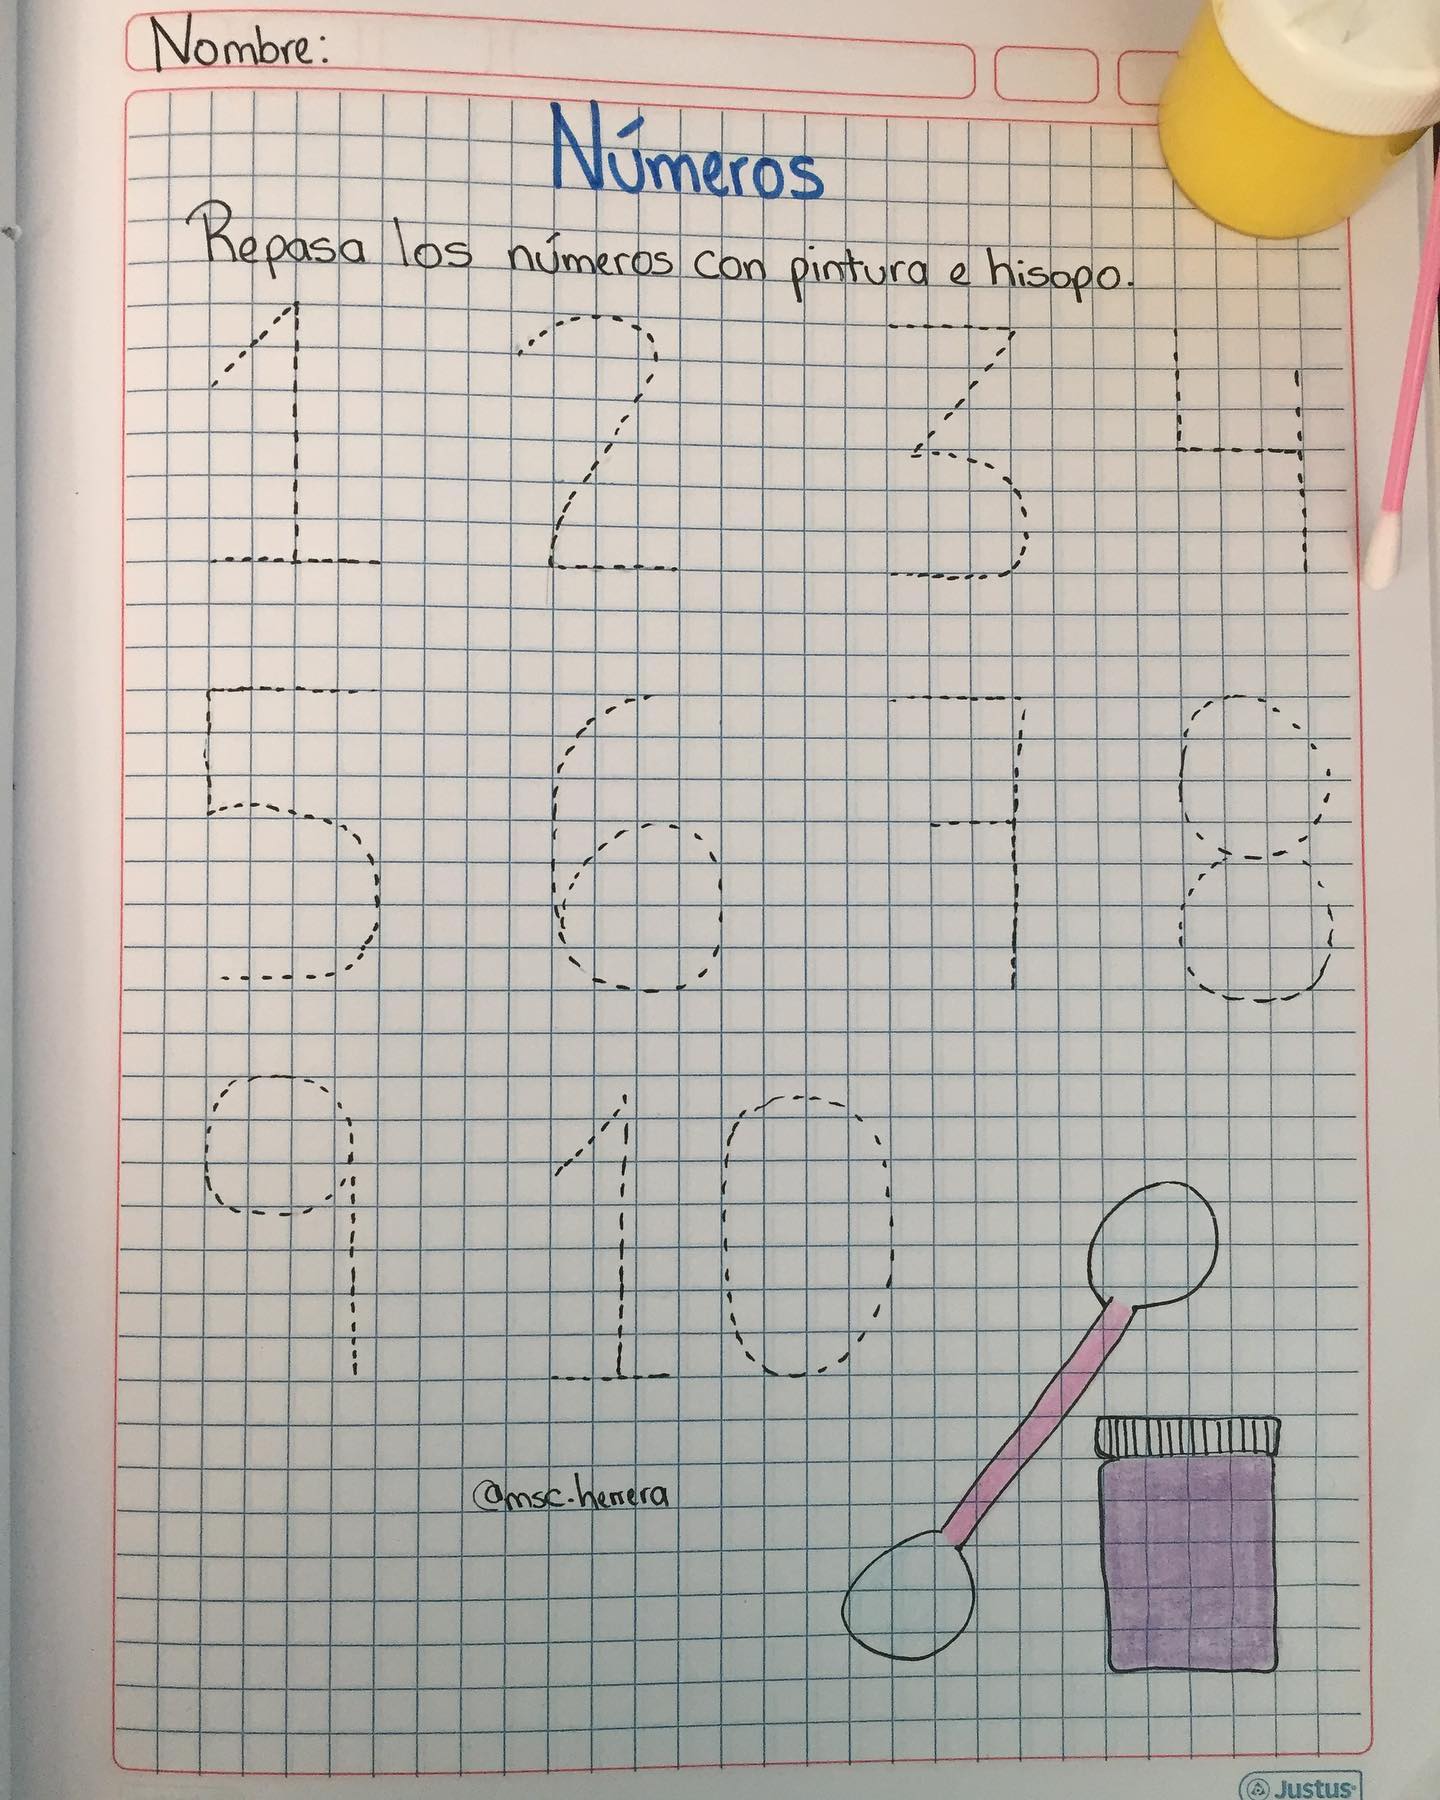 Nombre:
Números
Repasa los números con pintura e hisopo.
1 2 3 4
5 6 7 8
9 10
@msc.herrera
Justus